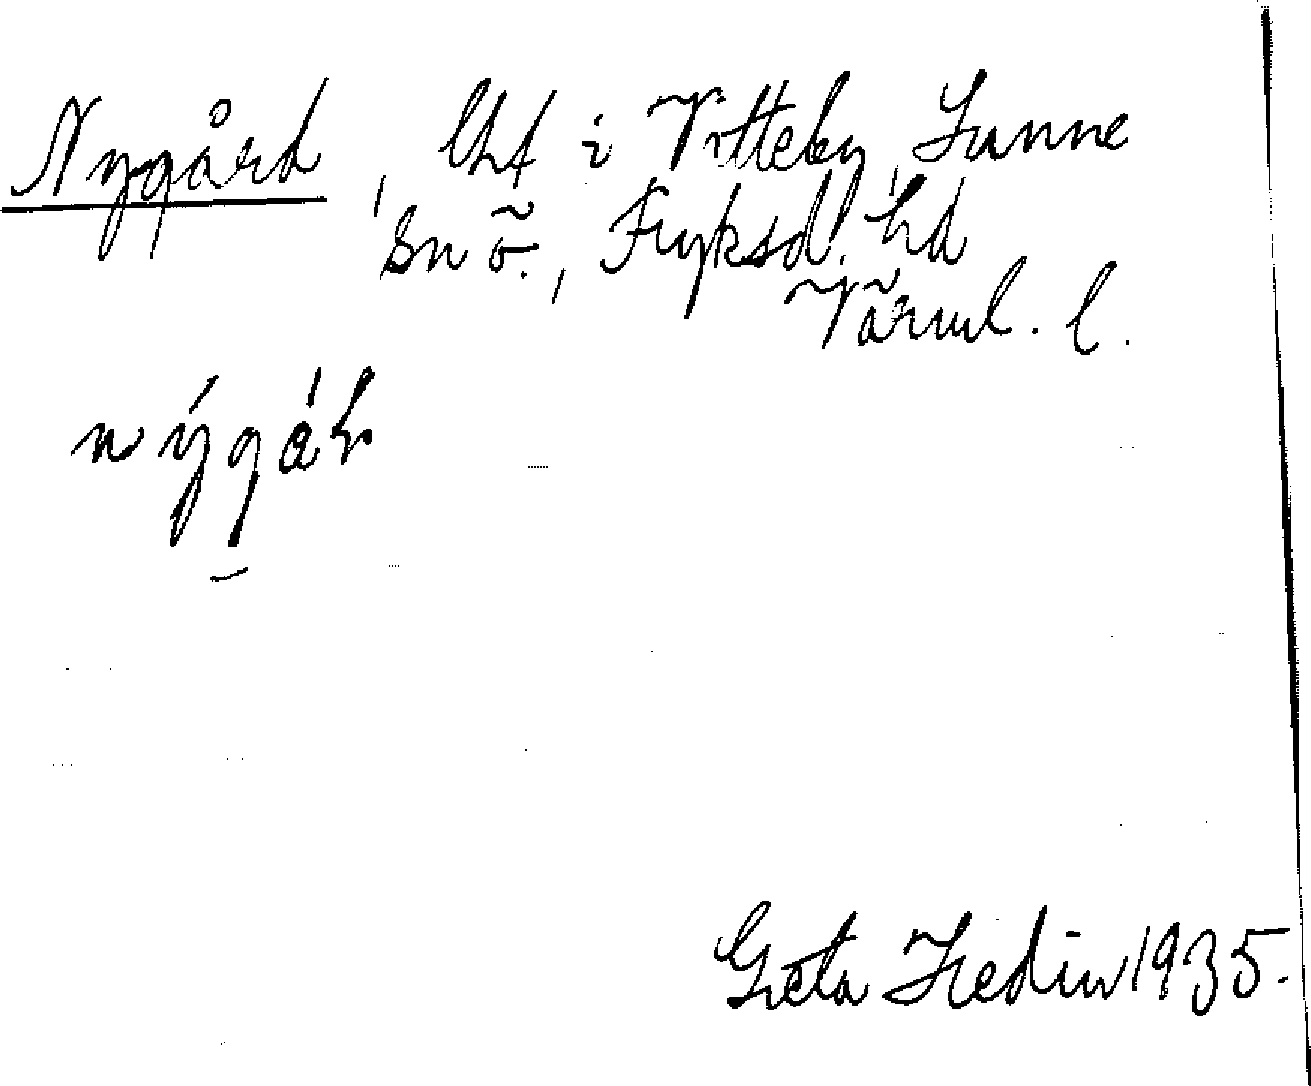 Nygård, lht i Vitteby, Sunne
sn ö., Fryksd. hd
Värml. l.
nýgár
Greta Hedin 1935.